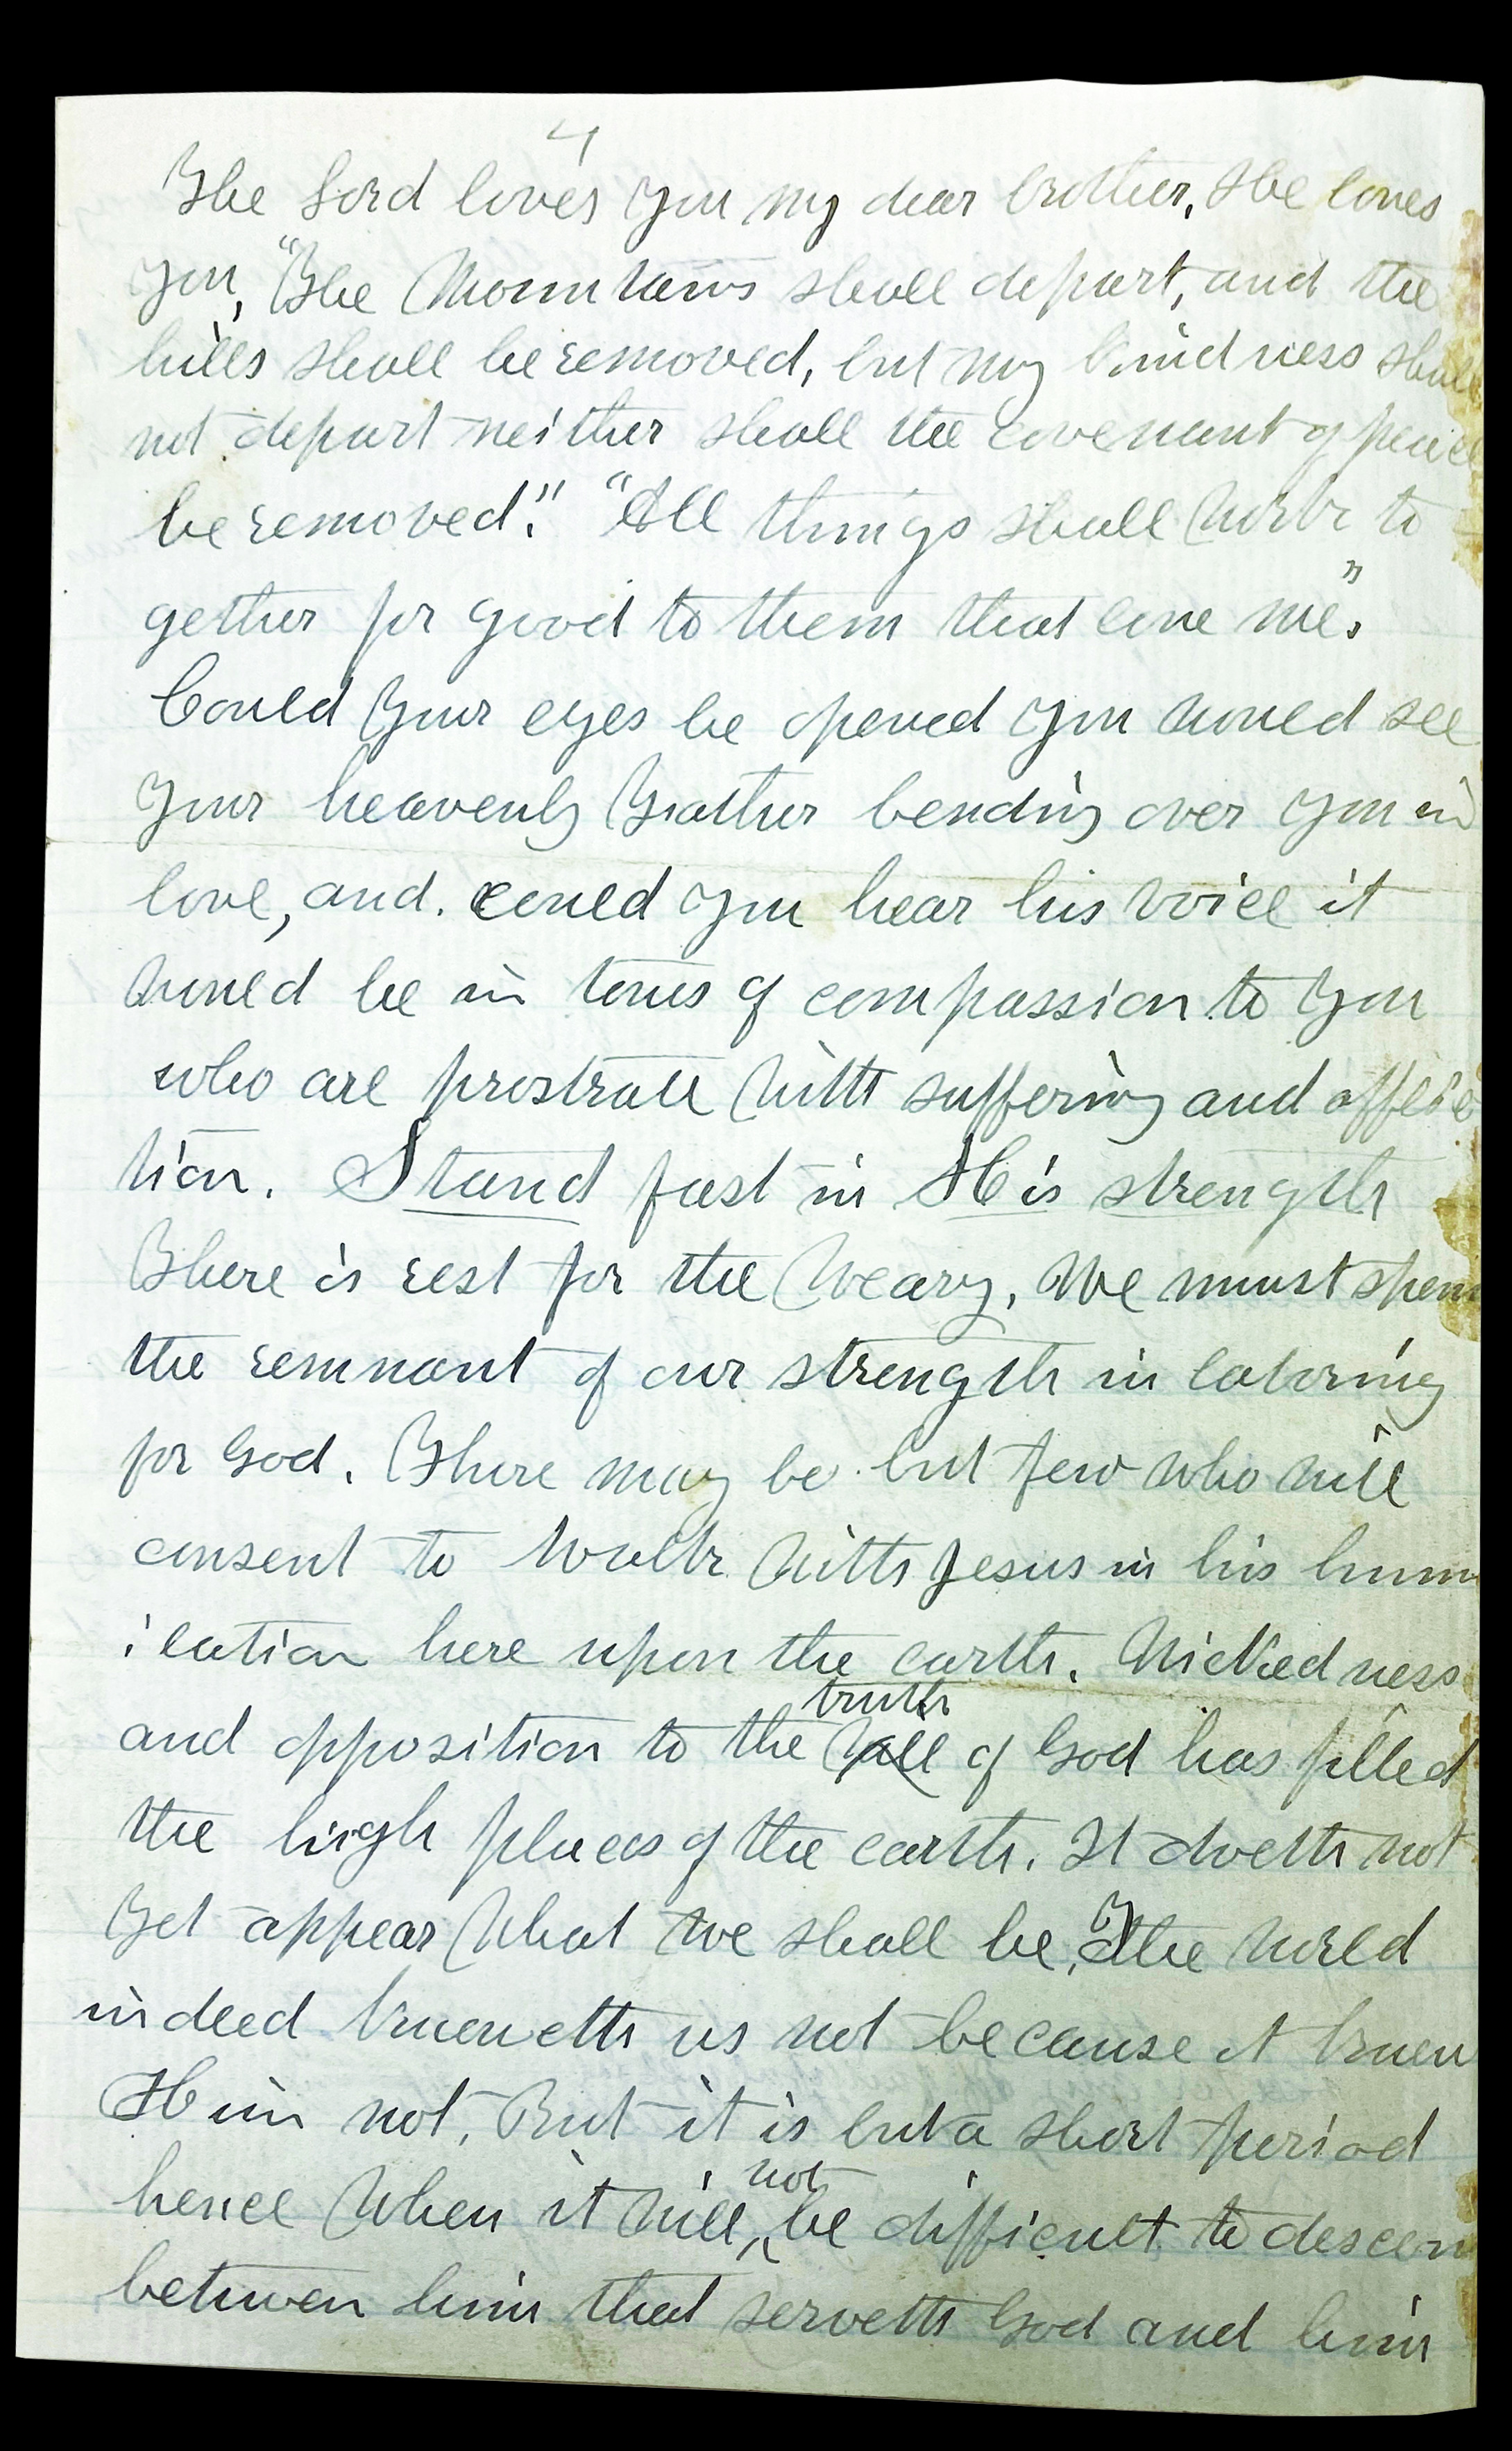 4
The Lord loves you my dear brother, He loves
you, "The Mountains shall depart, and the
hills shall be removed, but my kindness shall
not depart neither shall the covenant of peace
be removed." "All things shall work to
gether for good to them that love me."
Could your eyes be opened you would see
your heavenly Father bending over you in
love, and. could you hear his voice it
would be in tones of compassion to you
who are prostrate with suffering and afflic
tion. Stand fast in His strength
There is rest for the weary, We must spen
the remnant of our strength in laboring
for God. There may be but few who will
consent to walk with Jesus in his hum
iliation here upon the earth. Wickedness
truth
and opposition to the will of God has filled
the high places of the earth. It doeth not
yet appear what we shall be, The world
indeed knoweth us not because it knew
Him not, But it is but a short period
not
hence when it will, be difficult to descern
between him that serveth God and him